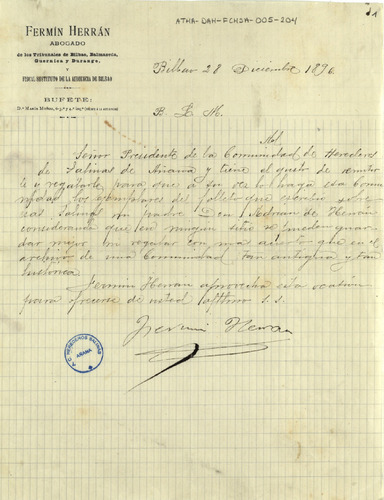 1
ATHA-DAH-FCHSA-005-204
FERMÍN HERRÁN
ABOGADO
de los Tribunales de Bilbao, Balmaseda,
Guernica y Durango,
Y
FISCAL SUSTITUTO DE LA AUDIENCIA DE BILBAO
BUFETE:
D.ª María Muñoz,
Bilbao 28 Diciembre 1896
B. L. M.
Al
Señor Presidente de la Comunidad de Herederos
de Salinas de Añana y tiene el gusto de remitir
le y regalarle para que á su vez lo haga esa Comu
nidad los ejemplares del folleto que escribió sobre
esas Salinas su padre Don de Herrán
considerando que en ningun sitio se pueden guar
dar mejor ni regular con mas acierto que en el
archivo de una Comunidad tan antigua y tan
historica.
Fermin Herran aprovecha esta ocasión
para ofrecerse de usted S. S.
Fermin Herran
A.C. HEREDEROS SALINAS
AÑANA